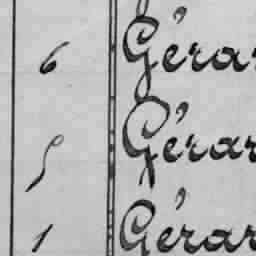 6 Gérar
5 Gérar
1 Gérar